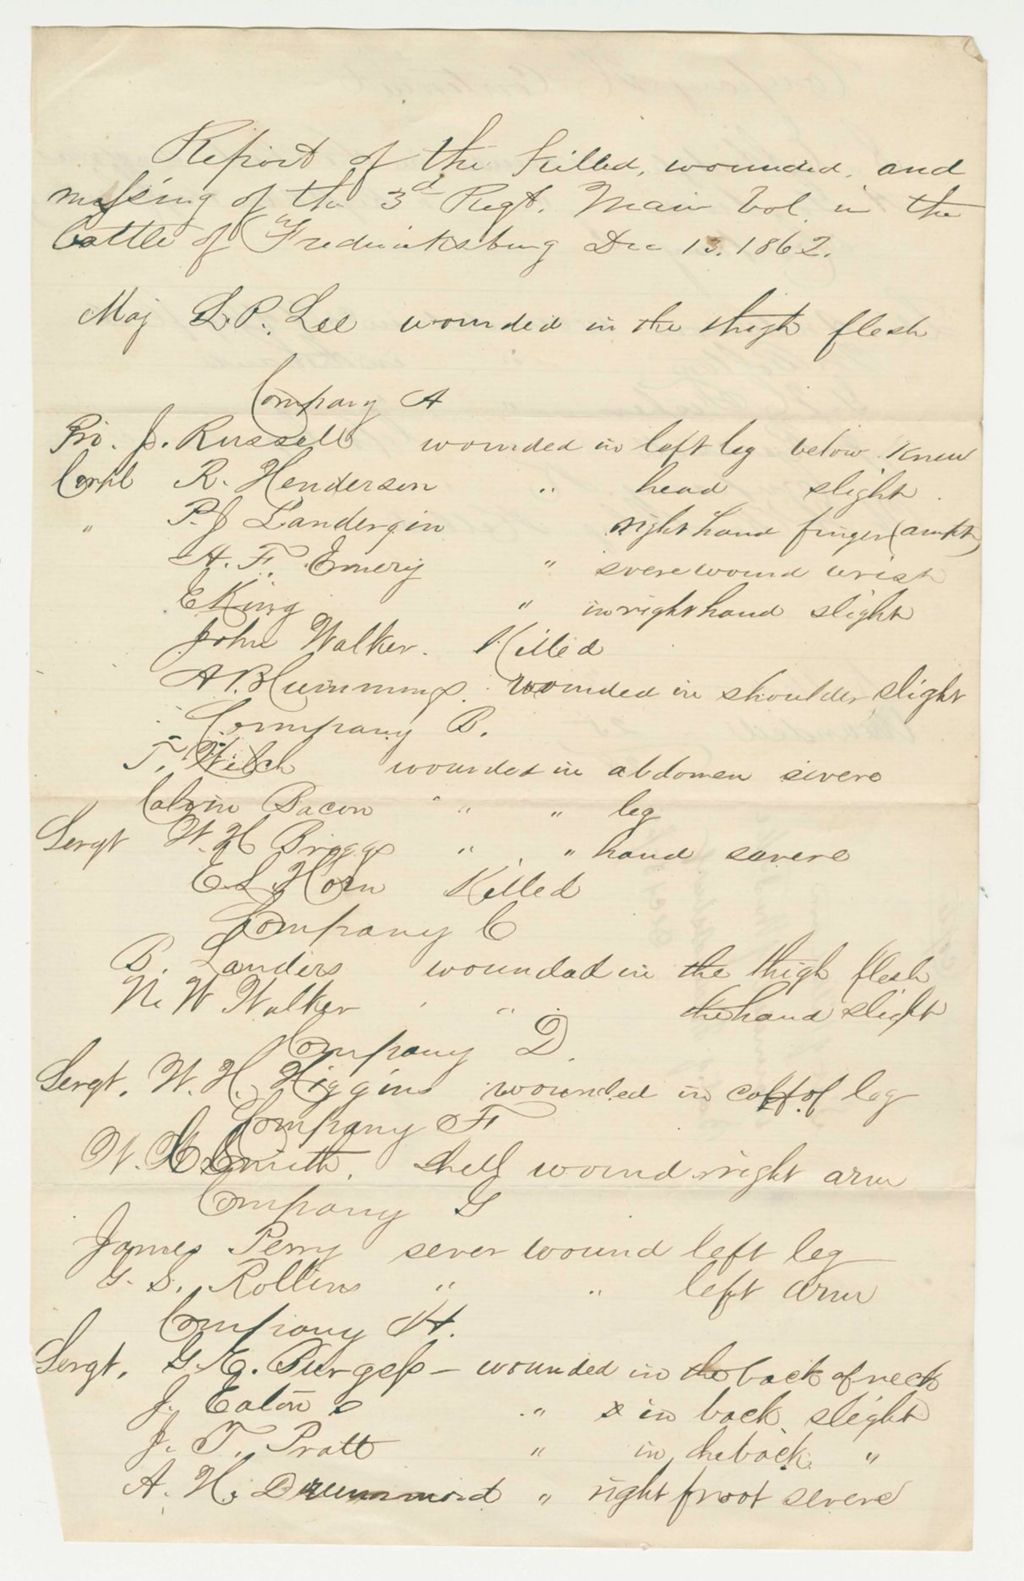 Report of the killed, wounded, and
missing of the 3d Regt. Main Vol. in the
Battle of Fredericksburg Dec 13. 1862.
Maj L. P. Lee wounded in the thigh flesh
Company A
Pri. J. Russell wounded in left leg below knee
Corpl R. Henderson " head slight.
" P. J Landergin right hand finger (ampt)
A. F. Emery " severe wound wrist
E King " in right hand slight
John Walker. Killed
wounded in shoulder slight
Company B.
T. wounded in abdomen severe
Calvin Bacon " " leg
Sergt W. H Briggs " " hand severe
E. S. Horn Killed
Company C
B. Sanders wounded in the thigh flesh
N. W Walker " " the hand slight
Company D.
Sergt. W. H. Higgins wounded in calf of leg
Company F
W. Smith. shell wound right arm
Company G
James Perry sever wound left leg
G. S. Rollins " " left arm
Company H.
Sergt. G. E. Burgess - wounded in the back of neck
J. Eaton " in back slight
J. T. Pratt " in the back "
A. H. Drummond " right froot severe